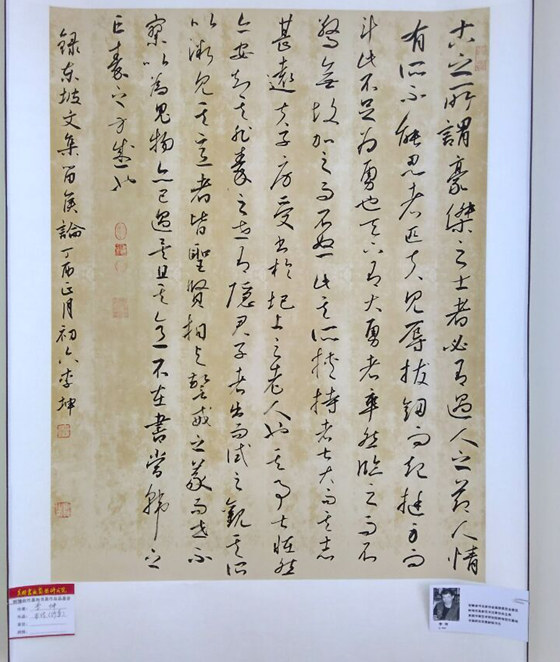 古之所謂豪傑之士者必有過人之節人情
有所不能忍者匹夫見辱拔劍而起挺身而
鬥此不足為勇也天下有大勇者卒然臨之而不
驚無故加之而不怒此其所挾持者甚大而其志
甚遠夫子房受書於圯上之老人也其事甚怪然
亦安知其非秦之世有隱君子者出而試之觀其所
以微見其意者皆聖賢相與警戒之義而世不
察以為鬼物亦已過矣且其意不在書當韓之
亡秦之方盛也
錄東坡文集留侯論丁酉正月初六李坤